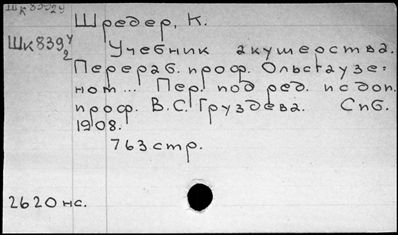 Шк 8392у
Шредер, К.
Шк839 у/2
Учебник акушерства.
Перераб. проф. Ольсгаузе-
ном... Пер. под ред. и с доп.
проф. В.С. Груздева. Спб.
1908.
763 стр.
2620нс.